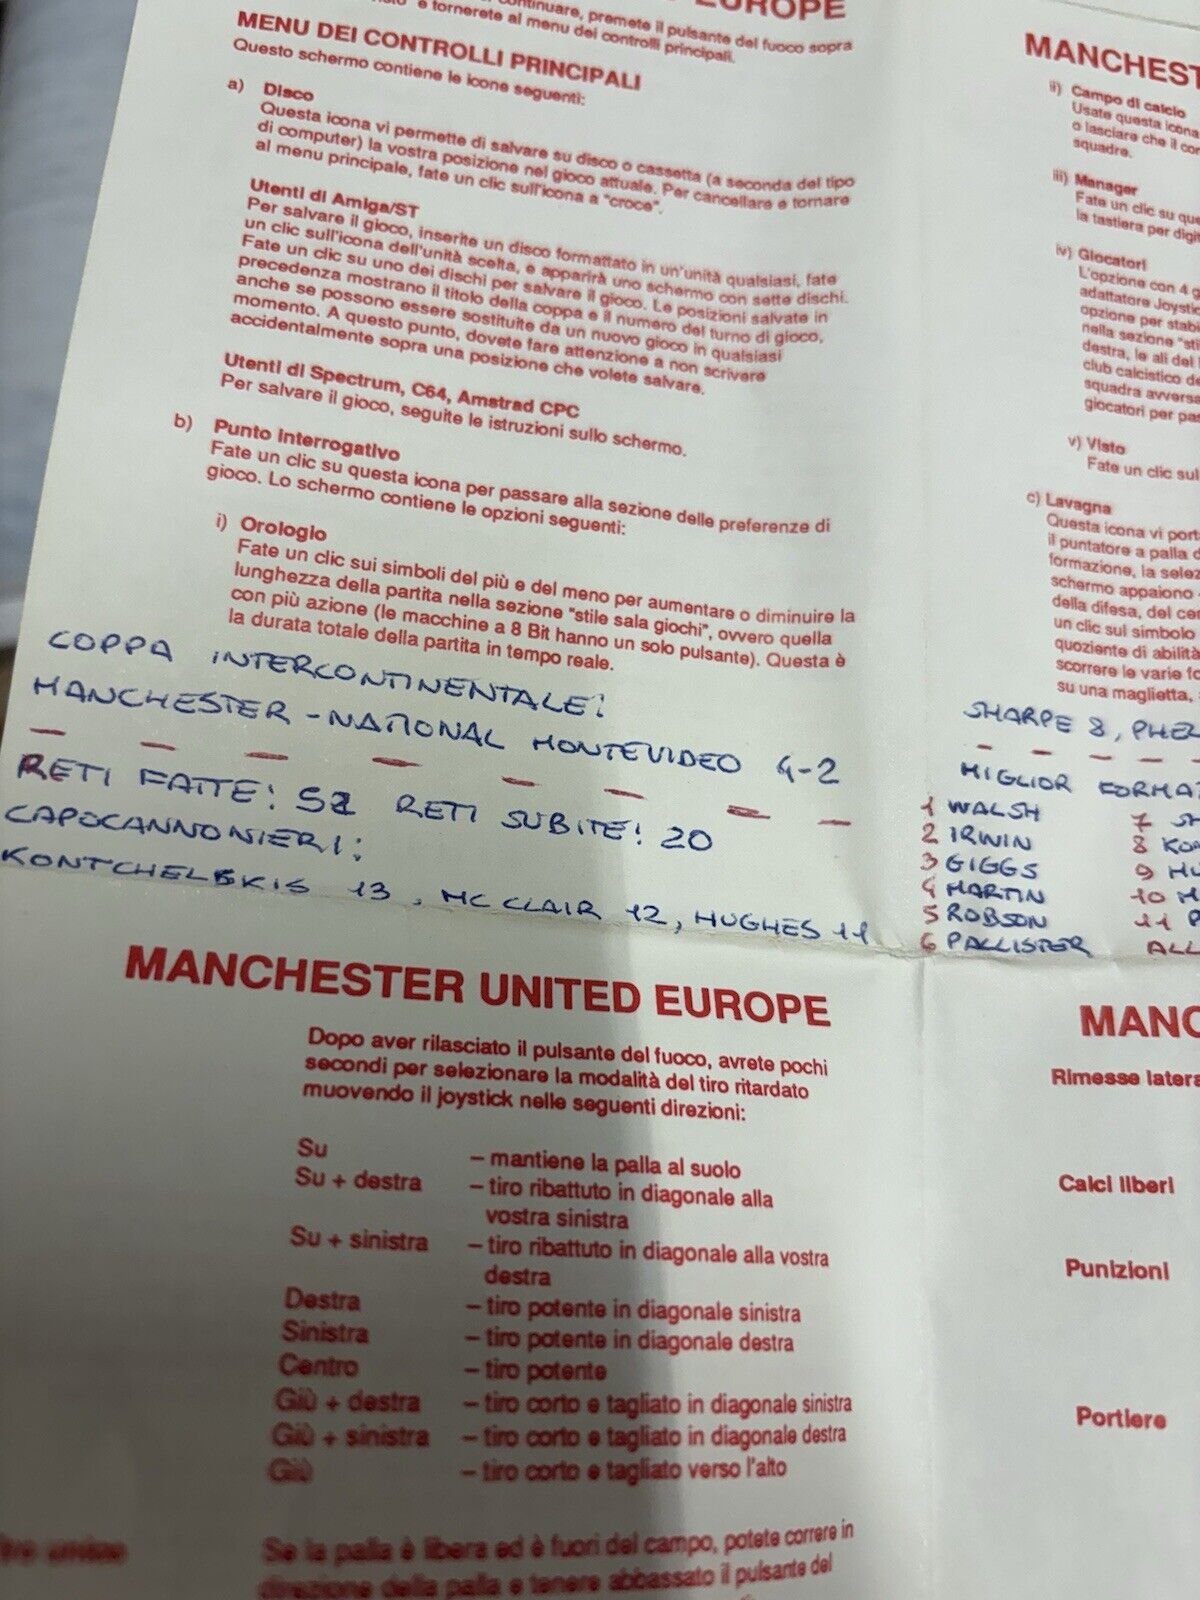 EUROPE
continuare, premete il pulsante del fuoco sopra
e tornerete al menu dei controlli principali.
MENU DEI CONTROLLI PRINCIPALI
Questo schermo contiene le icone seguenti:
a) Disco
Questa icona vi permette di salvare su disco o cassetta (a seconda del tipo
di computer) la vostra posizione nel gioco attuale. Per cancellare e tornare
al menu principale, fate un clic sull'icona a "croce".
Utenti di Amiga/ST
Per salvare il gioco, inserite un disco formattato in un'unità qualsiasi, fate
un clic sull'icona dell'unità scelta, e apparirà uno schermo con sette dischi.
Fate un clic su uno dei dischi per salvare il gioco. Le posizioni salvate in
precedenza mostrano il titolo della coppa e il numero del turno di gioco,
anche se possono essere sostituite da un nuovo gioco in qualsiasi
momento. A questo punto, dovete fare attenzione a non scrivere
accidentalmente sopra una posizione che volete salvare.
Utenti di Spectrum, C64, Amstrad CPC
Per salvare il gioco, seguite le istruzioni sullo schermo.
b) Punto Interrogativo
Fate un clic su questa icona per passare alla sezione delle preferenze di
gioco. Lo schermo contiene le opzioni seguenti:
i) Orologio
Fate un clic sui simboli del più e del meno per aumentare o diminuire la
lunghezza della partita nella sezione "stile sala giochi", ovvero quella
con più azione (le macchine a 8 Bit hanno un solo pulsante). Questa è
la durata totale della partita in tempo reale.
COPPA INTERCONTINENTALE:
MANCHESTER - NATIONAL MONTEVIDEO 4-2
RETI FATTE: 52 RETI SUBITE: 20
CAPOCANNONIERI:
KONTCHELSKIS 13, MC CLAIR 12, HUGHES 11
MANCHEST
ii) Campo di calcio
Usate questa icona
o lasciare che il
squadre.
iii) Manager
Fate un clic su
la tastiera per
iv) Giocatori
L'opzione con 4
adattatore
opzione per
nella sezione
destra, le ali del
club calcistico
squadra
giocatori per
v) Visto
Fate un clic
c) Lavagna
Questa icona vi
il puntatore a palla
formazione, la
schermo appaiono
della difesa, del
un clic sul simbolo
quoziente di abilità
scorrere le varie
su una maglietta,
SHARPE 8,
MIGLIOR
1 WALSH 7
2 IRWIN 8
3 GIGGS 9
4 MARTIN 10
5 ROBSON 11
6 PALLISTER
MANCHESTER UNITED EUROPE
Dopo aver rilasciato il pulsante del fuoco, avrete pochi
secondi per selezionare la modalità del tiro ritardato
muovendo il joystick nelle seguenti direzioni:
Su – mantiene la palla al suolo
Su + destra – tiro ribattuto in diagonale alla
vostra sinistra
Su + sinistra – tiro ribattuto in diagonale alla vostra
destra
Destra – tiro potente in diagonale sinistra
Sinistra – tiro potente in diagonale destra
Centro – tiro potente
Giù + destra – tiro corto e tagliato in diagonale sinistra
Giù + sinistra – tiro corto e tagliato in diagonale destra
Giù – tiro corto e tagliato verso l'alto
Se la palla è libera ed è fuori del campo, potete correre in
direzione della palla e tenere abbassato il pulsante del
MANC
Rimesse
Calci liberi
Punizioni
Portiere